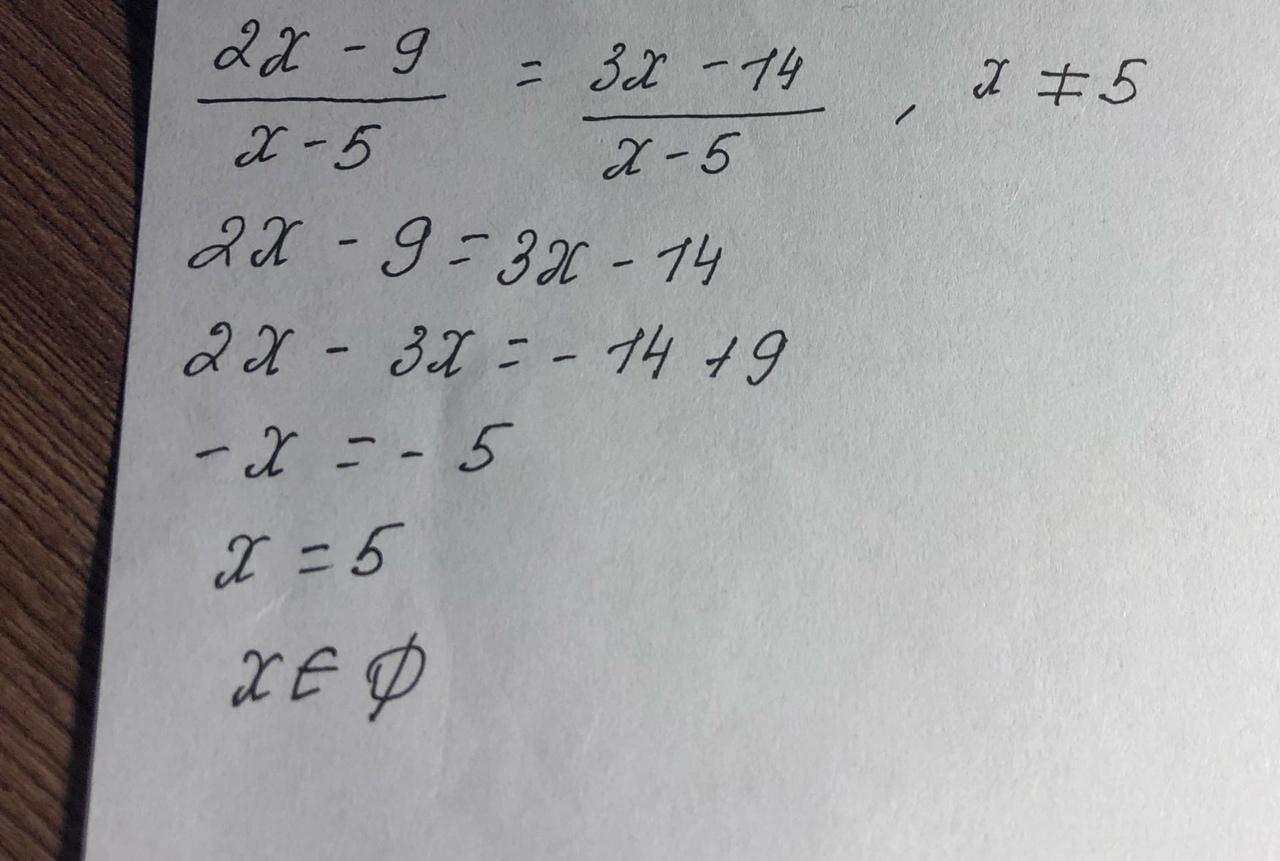 (2x - 9)/(x - 5) = (3x - 14)/(x - 5) , x ≠ 5
2x - 9 = 3x - 14
2x - 3x = - 14 + 9
-x = - 5
x = 5
x ∈ ∅